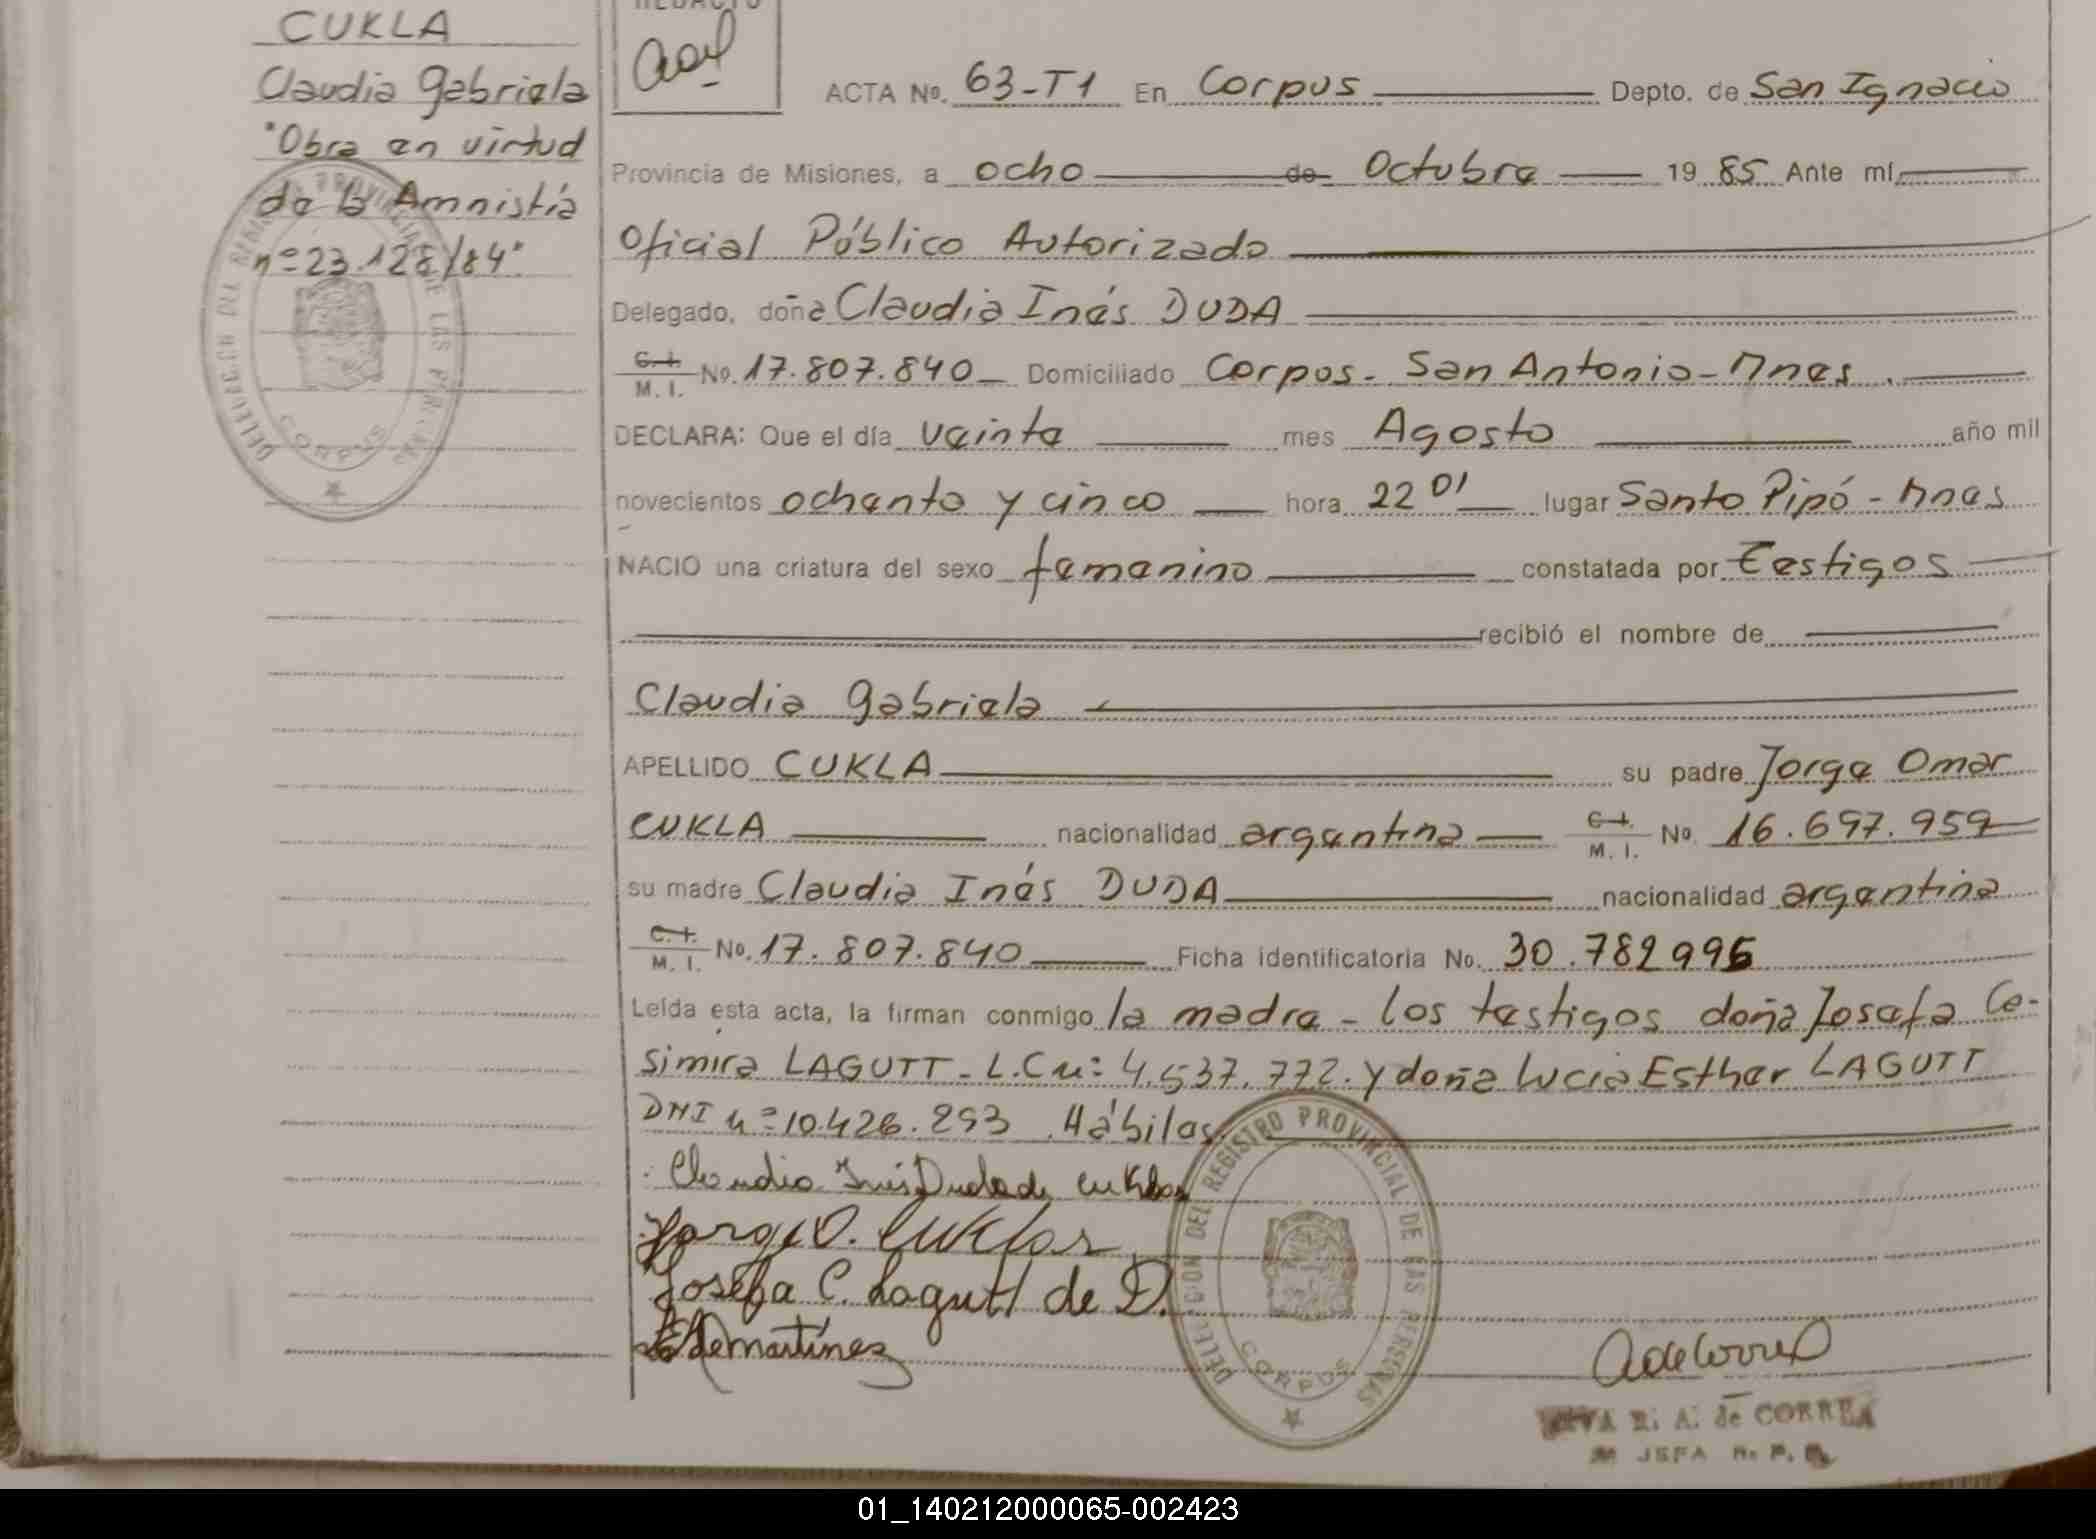 CUKLA
Claudia Gabriela
"Obra en virtud
de la Amnistía
nº 23.128/84"
REDACTO
ACTA No. 63-T1 En Corpus Depto. de San Ignacio
Provincia de Misiones, a ocho de Octubre 19 85 Ante mí,
Oficial Público Autorizado
Delegado, doña Claudia Inés DUDA
C. I. / M. I. No. 17.807.840 Domiciliado Corpus - San Antonio - Mnes.
DECLARA: Que el día veinte mes Agosto año mil
novecientos ochenta y cinco hora 22 01 lugar Santo Pipó - Mnes
NACIO una criatura del sexo femenino constatada por Testigos
recibió el nombre de
Claudia Gabriela
APELLIDO CUKLA su padre Jorge Omar
CUKLA nacionalidad argentina C. I. / M. I. No. 16.697.959
su madre Claudia Inés DUDA nacionalidad argentina
C. I. / M. I. No. 17.807.840 Ficha identificatoria No. 30.782996
Leída esta acta, la firman conmigo la madre - los testigos doña Josefa Ca-
simira LAGUTT - L.C nº: 4.537.772. y doña Lucia Esther LAGUTT
DNI nº 10.426.293. Hábiles
Claudia Inés Duda de Cuklas
Jorge O. Cuklas
Josefa C. Lagutt de D.
de Martínez
DELEGACION DEL REGISTRO PROVINCIAL DE LAS PERSONAS
CORPUS
A de Correa
R. A. de CORREA
JEFA R. P.
01_140212000065-002423